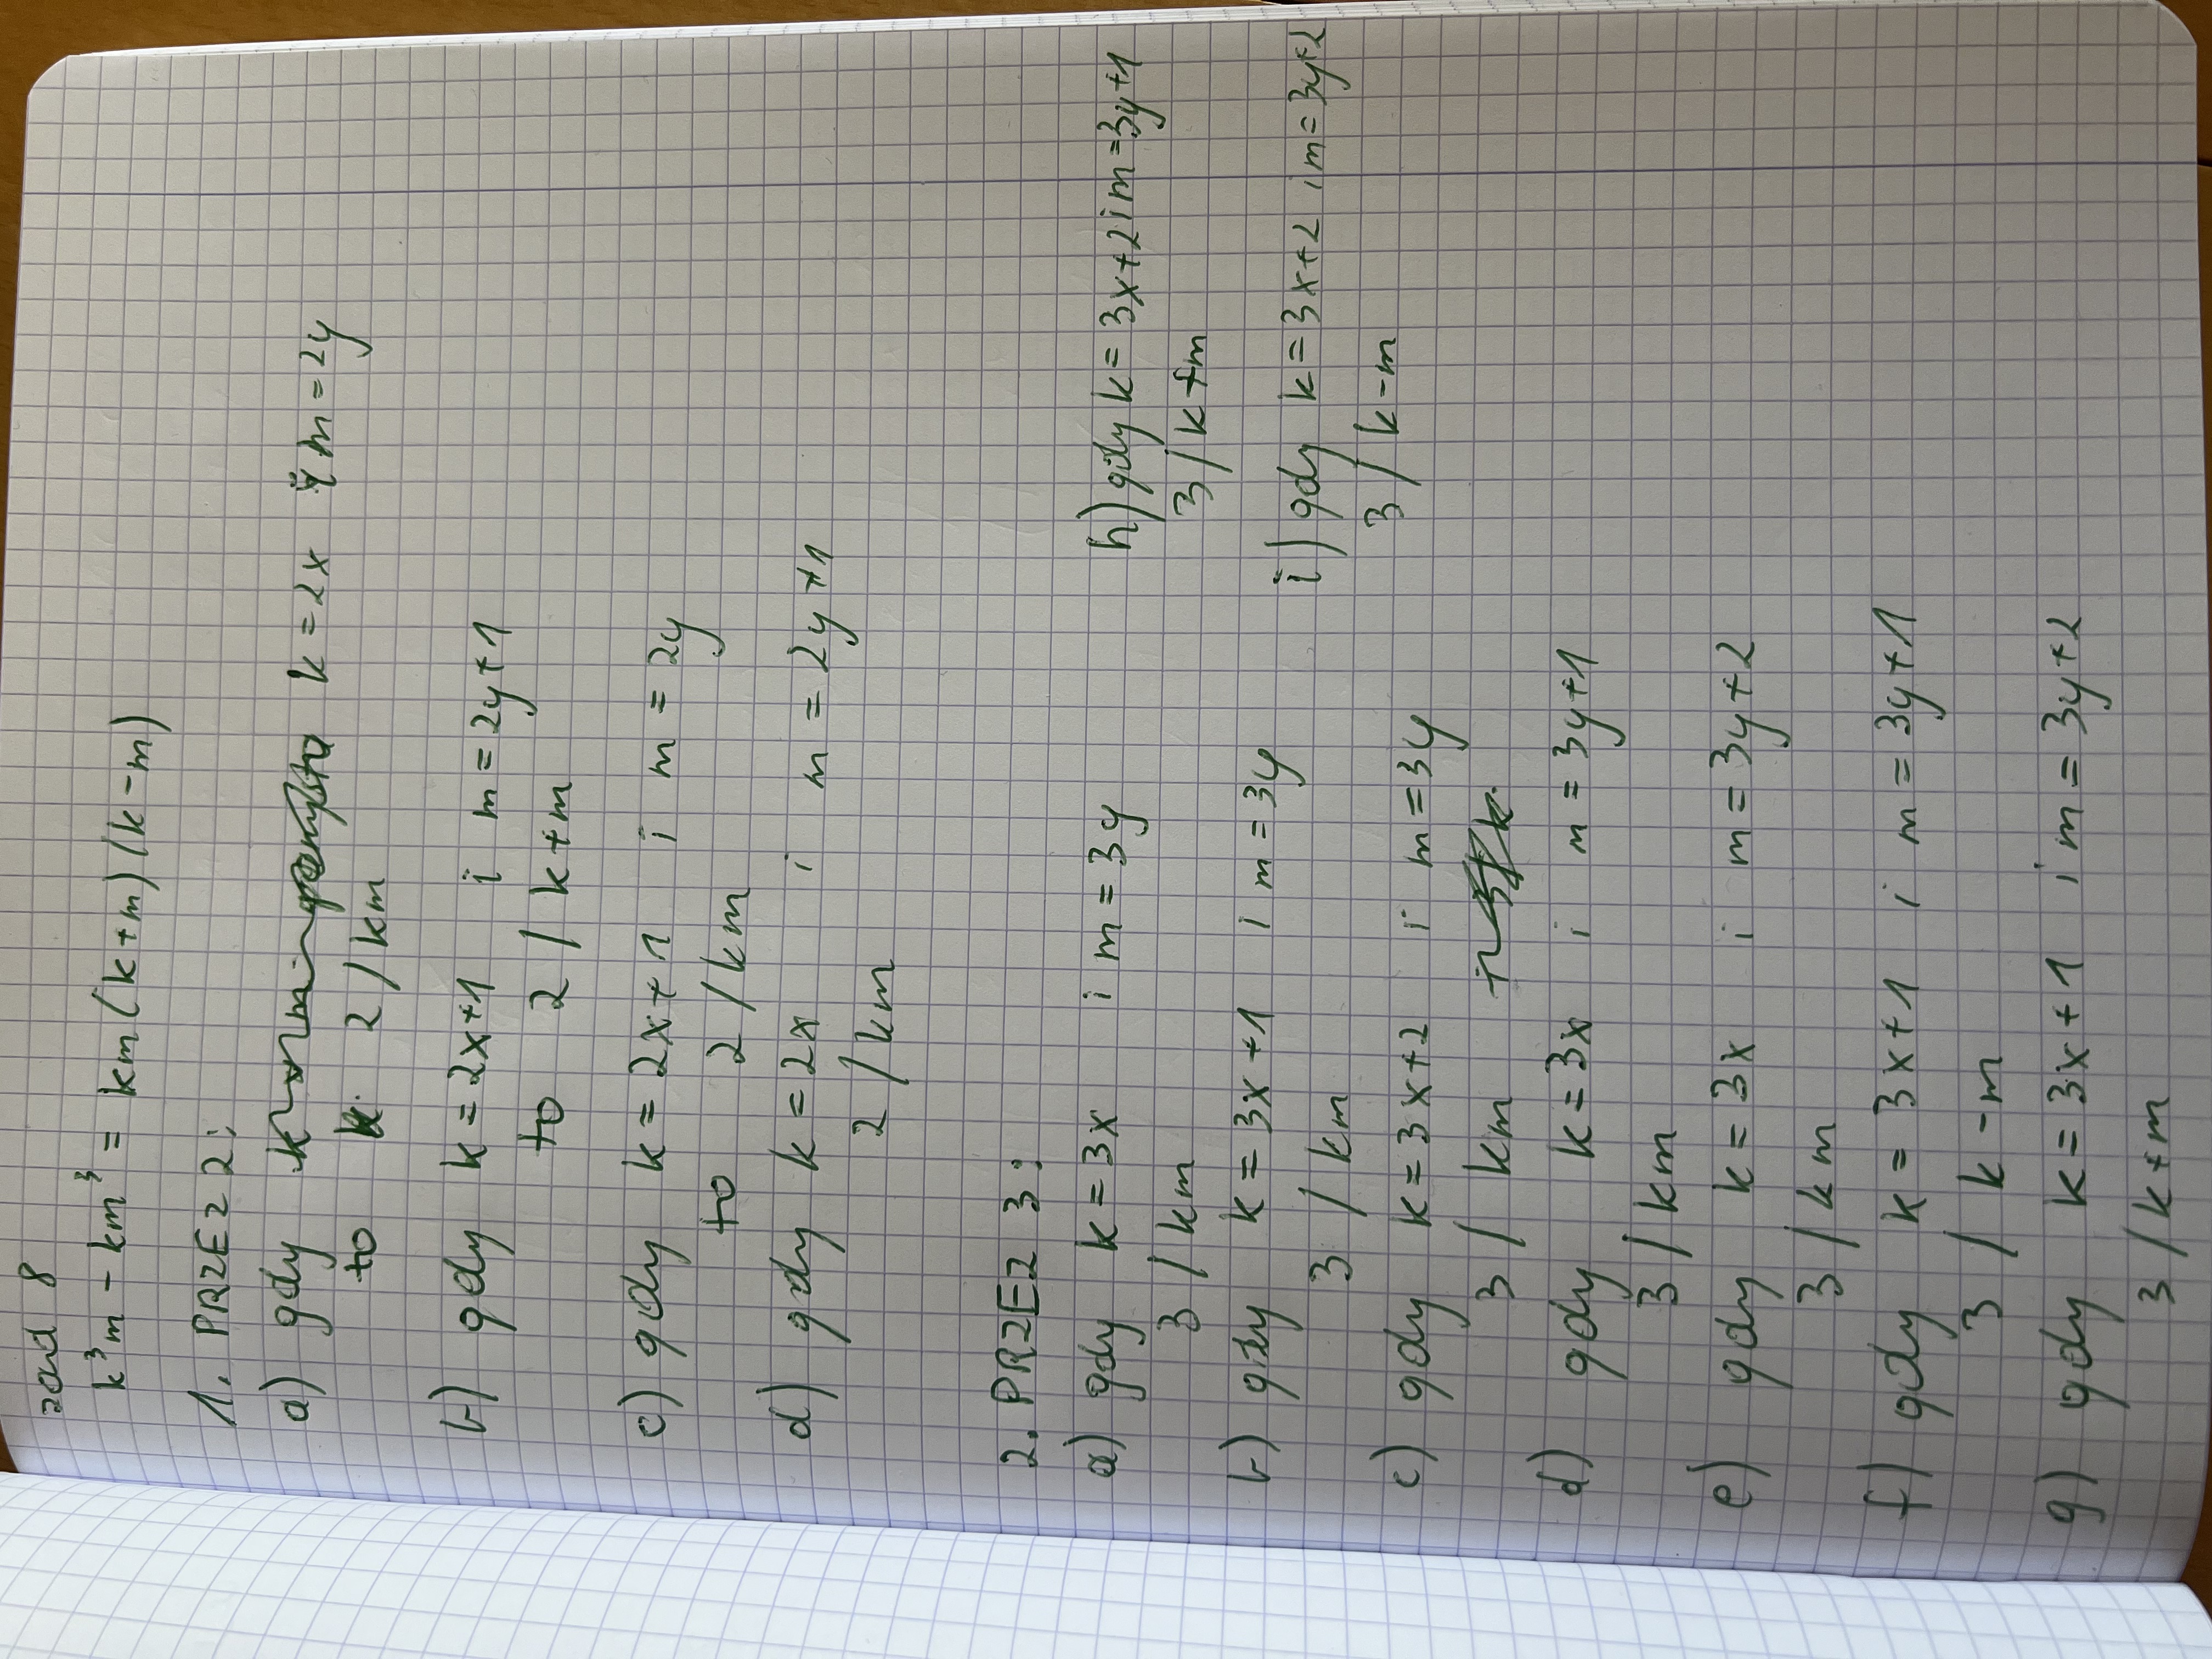 zad 8
k³m - km³ = km(k+m)(k-m)
1. PRZEZ 2:
a) gdy k=2x i m=2y
to 2/km
b) gdy k=2x+1 i m=2y+1
to 2/k+m
c) gdy k=2x+1 i m=2y
to 2/km
d) gdy k=2x i m=2y+1
2/km
2. PRZEZ 3:
a) gdy k=3x i m=3y
3/km
b) gdy k=3x+1 i m=3y
3/km
c) gdy k=3x+2 i m=3y
3/km
d) gdy k=3x i m=3y+1
3/km
e) gdy k=3x i m=3y+2
3/km
f) gdy k=3x+1 i m=3y+1
3/k-m
g) gdy k=3x+1 i m=3y+2
3/k+m
h) gdy k=3x+2 i m=3y+1
3/k+m
i) gdy k=3x+2 i m=3y+2
3/k-m